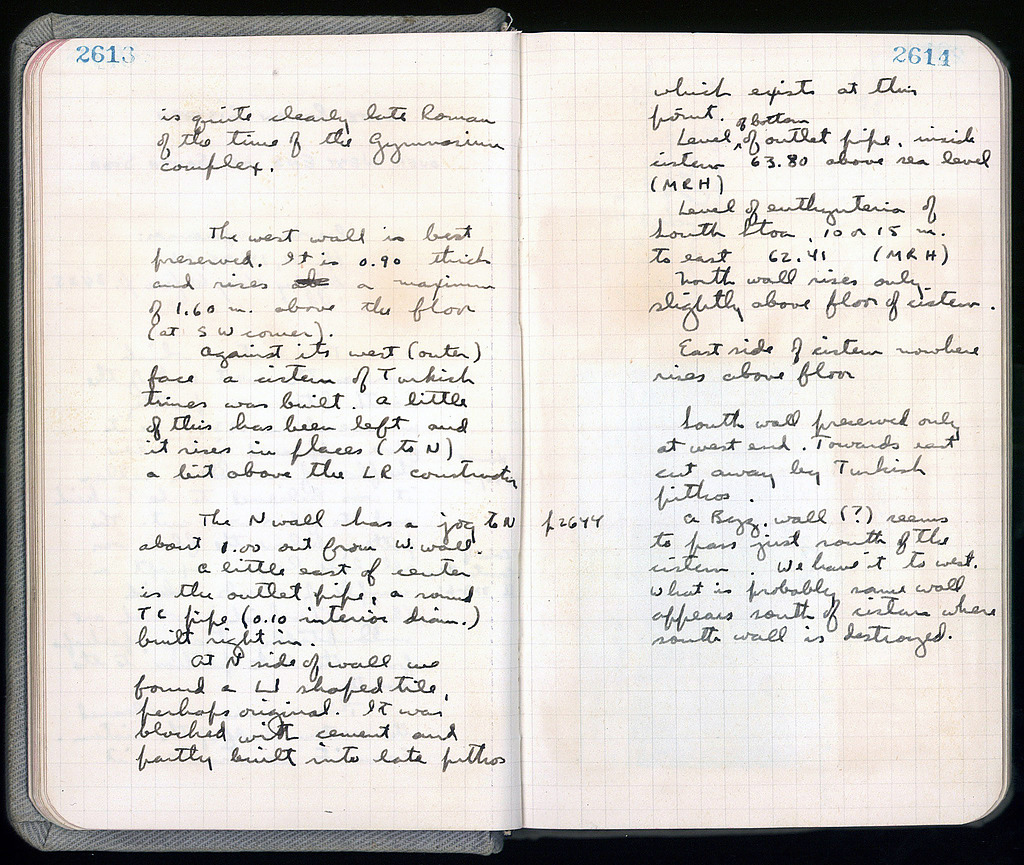 2613
is quite clearly late Roman
of the time of the Gymnasium
complex.
The west wall is best
preserved. It is 0.90 thick
and rises a maximum
of 1.60 m. above the floor
(at S W corner).
Against its west (outer)
face a cistern of Turkish
times was built. A little
of this has been left and
it rises in places (to N)
a bit above the LR construction
The N wall has a jog to N
about 1.00 out from W. wall.
A little east of center
is the outlet pipe, a round
TC pipe (0.10 interior diam.)
built right in.
At N side of wall we
found a ⊔ shaped tile,
perhaps original. It was
blocked with cement and
partly built into late pithos
2614
which exists at this
point.
of bottom
Level of outlet pipe, inside
cistern 63.80 above sea level
(MRH)
Level of euthynteria of
South Stoa, 10 or 15 m.
to east 62.41 (MRH)
North wall rises only
slightly above floor of cistern.
East side of cistern nowhere
rises above floor
South wall preserved only
at west end. Towards east
cut away by Turkish
pithos.
p 2644
A Byz. wall (?) seems
to pass just south of the
cistern. We have it to west.
What is probably same wall
appears south of cistern where
south wall is destroyed.